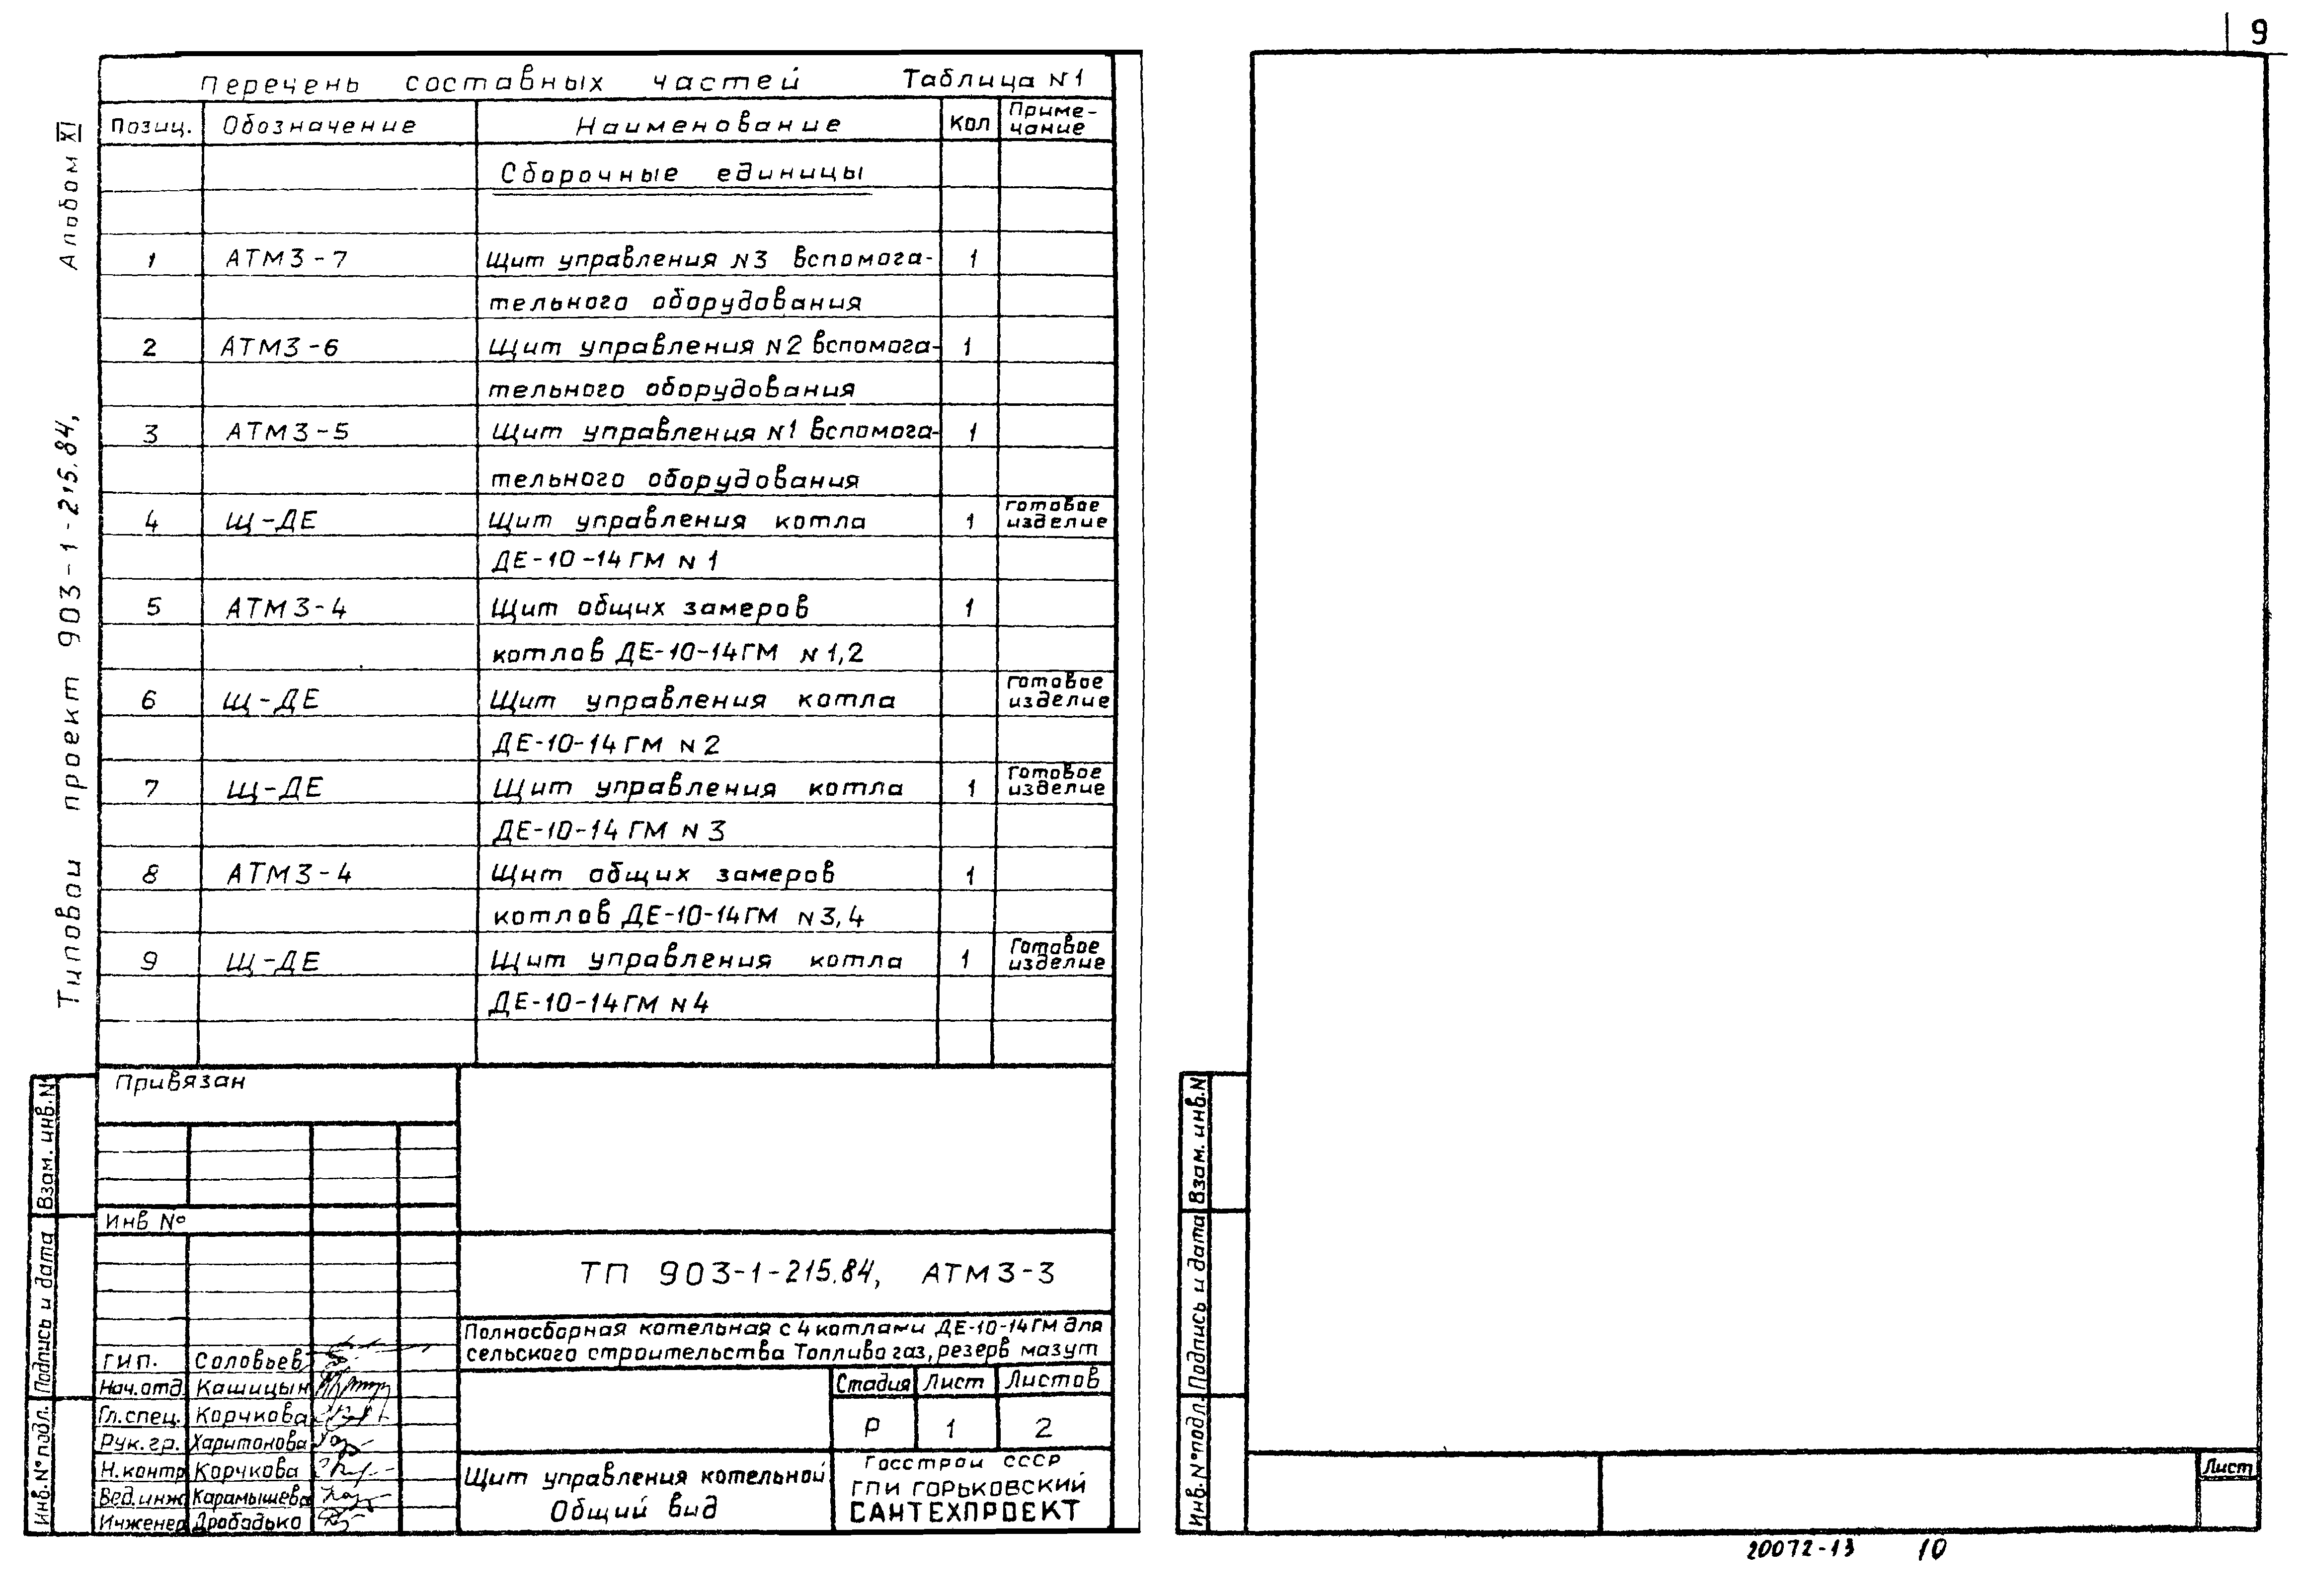 9
Перечень составных частей Таблица N1
Позиц. Обозначение Наименование Кол Приме-
чание
Сборочные единицы
1 АТМ3-7 Щит управления N3 вспомога- 1
тельного оборудования
2 АТМ3-6 Щит управления N2 вспомога- 1
тельного оборудования
3 АТМ3-5 Щит управления N1 вспомога- 1
тельного оборудования
4 Щ-ДЕ Щит управления котла 1 готовое изделие
ДЕ-10-14ГМ N1
5 АТМ3-4 Щит общих замеров 1
котлов ДЕ-10-14ГМ N1,2
6 Щ-ДЕ Щит управления котла готовое изделие
ДЕ-10-14ГМ N2
7 Щ-ДЕ Щит управления котла 1 готовое изделие
ДЕ-10-14ГМ N3
8 АТМ3-4 Щит общих замеров 1
котлов ДЕ-10-14ГМ N3,4
9 Щ-ДЕ Щит управления котла 1 Готовое изделие
ДЕ-10-14ГМ N4
Типовой проект 903-1-215.84, Альбом XI
Привязан
Инв №
ТП 903-1-215.84, АТМ3-3
Полносборная котельная с 4 котлами ДЕ-10-14ГМ для
сельского строительства Топливо газ, резерв мазут
ГИП. Соловьев
Нач.отд. Кашицын
Гл.спец. Корчкова
Рук.гр. Харитонова
Н.контр Корчкова
Вед.инж Карамышева
Инженер Дробадько
Стадия Лист Листов
Р 1 2
Щит управления котельной
Общий вид
Госстрой СССР
ГПИ ГОРЬКОВСКИЙ
САНТЕХПРОЕКТ
Инв.№подл. Подпись и дата Взам. инв.N
Инв.№подл. Подпись и дата Взам. инв.N
Лист
20072-13 10